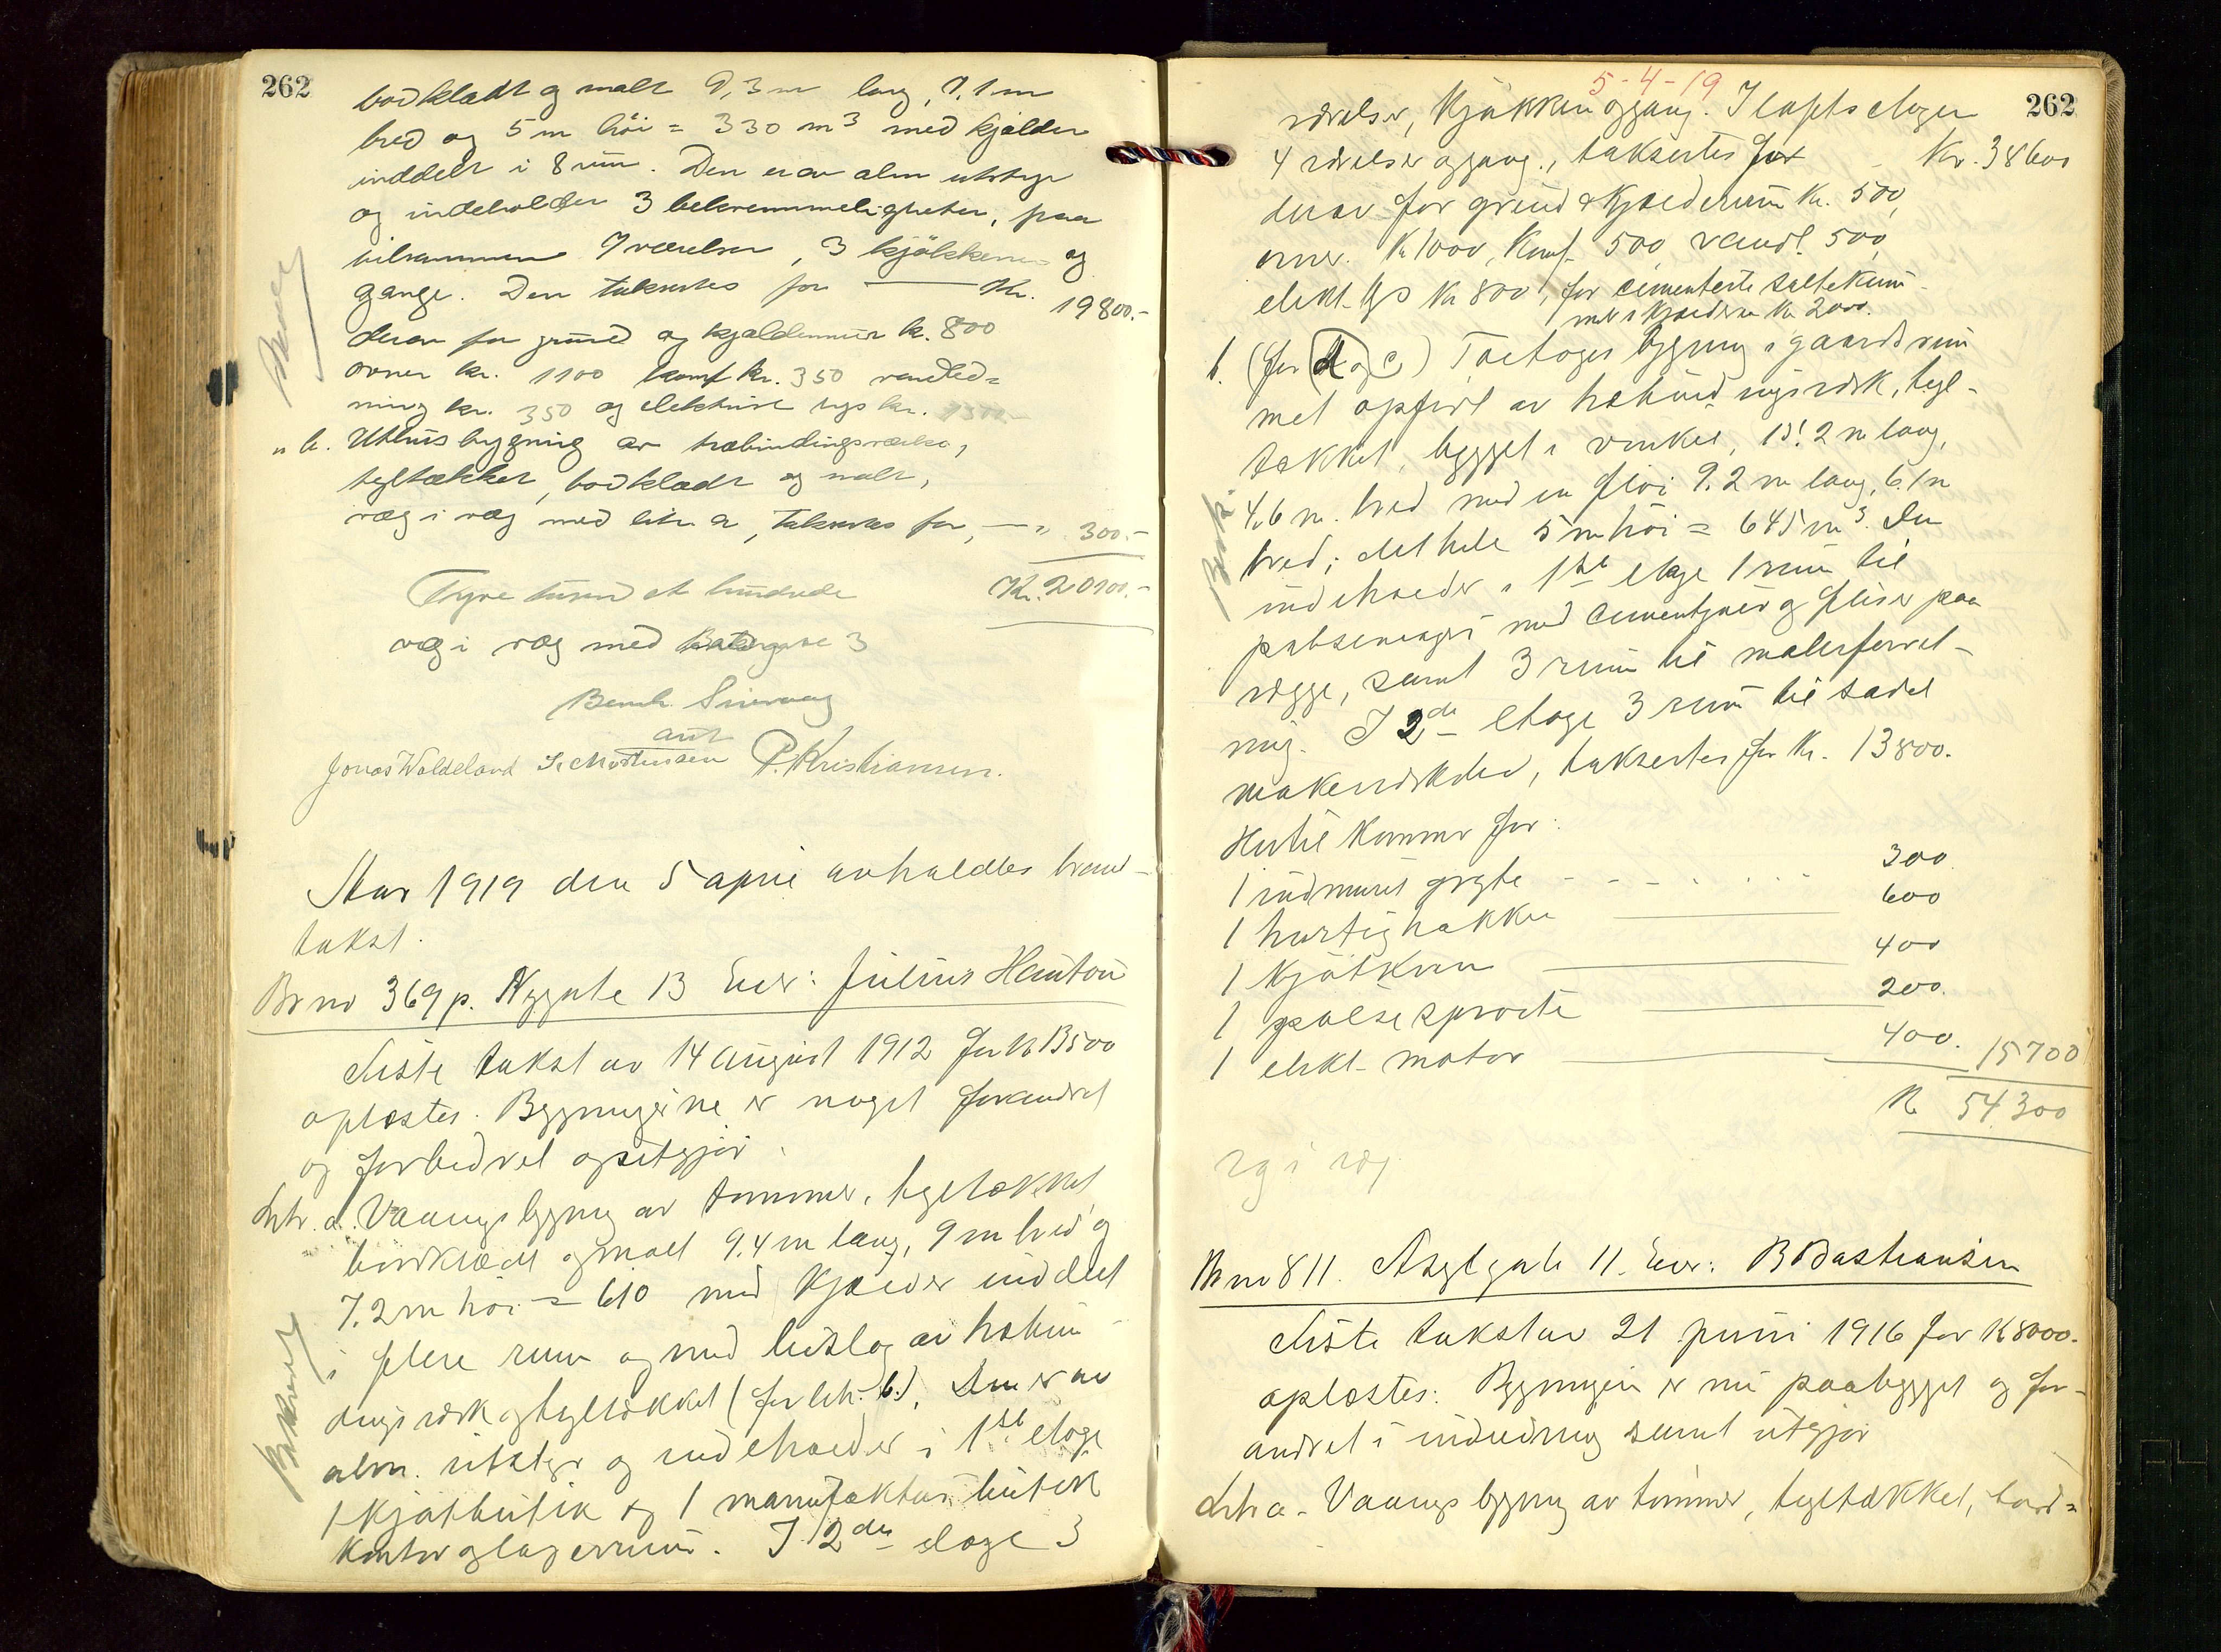 262
bordklædt og malt 9,3 m lang, 7,1 m
bred og 5 m höi = 330 m³ med kjælder
inddelt i 8 rum. Den er av alm utstyr
og indeholder 3 bekvemmeligheter, paa
tilsammen 7 værelser, 3 kjökkener og
gange. Den takseres for — Kr. 19800.-
derav for grund og kjældermur kr. 800
ovner kr. 1100 komf kr. 350 vandled=
ning kr. 350 og elektrisk lys kr.
" b. Uthusbygning av træbindingsverk,
tegltækket, bordklædt og malt,
væg i væg med litr. a, takseres for, — " 300.-
Kr. 20100.-
Tyve tusen et hundrede
væg i væg med 3
Jonas Waldeland S. Mortensen P. Kristiansen.
Aar 1919 den 5 april avholdtes brand-
takst.
Br no 369 p. Nygate 13 Eier: Julius
Siste takst av 14 august 1912 for kr 13500
oplæstes. Bygningerne er noget forandret
og forbedret og utgjör.
Litr. a. Vaaningsbygning av tømmer, tegltækket,
bordklædt og malt 9.4 m lang, 9 m bred og
7.2 m höi = 610 med kjælder inddelt
i flere rum og med bislag av træbin-
dingsverk og tegltækket (før litr. b.). Den er av
alm. utstyr og indeholder i 1ste etage
1 kjøtbutik og 1 manufaktur butik
kontor og lagerrum. I 2den etage 3
5-4-19
262
værelser, kjøkken og gang. I loftsetagen
4 værelser og gang., takseres for - Kr. 38600
derav for grund & kjældermur Kr. 500,
ovner. Kr 1000, Komf. 500, vandl. 500,
elekt. lys kr 800, for cementerte saltekum-
mer i kjælderen kr 2000.
b. (før d og c) Toetages bygning i gaardsrum
met opført av træbindingsværk, tegl-
tækket, bygget i vinkel, 15.2 m lang,
4,6 m. bred med en fløi 9.2 m lang, 6.1 m
bred; det hele 5 m høi = 645 m³. Den
indeholder i 1ste etage 1 rum til
pølsemakeri med cementgulv og fliser paa
vægge, samt 3 rum til malerforret-
ning. I 2den etage 3 rum til sadel
makerverksted, takseres for Kr. 13800.
Hertil kommer for:
1 indmuret gryte - - - - - - 300
1 hurtighakker — 600
1 kjøtkvern — 400
1 pølsesprøite — 200.
1 elekt. motor — 400. 15700
Kr 54300
væg i væg.
Br no 811. Asylgate 11. Eier: B Bastiansen
Siste takst av 21 juni 1916 for kr 8000.
oplæstes. Bygningen er nu paabygget og for-
andret i indredning samt utgjør
Litr a - Vaaningsbygning av tømmer, tegltækket, bord=